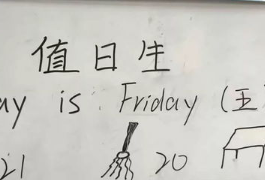 值日生
ay is Friday (五
21 20